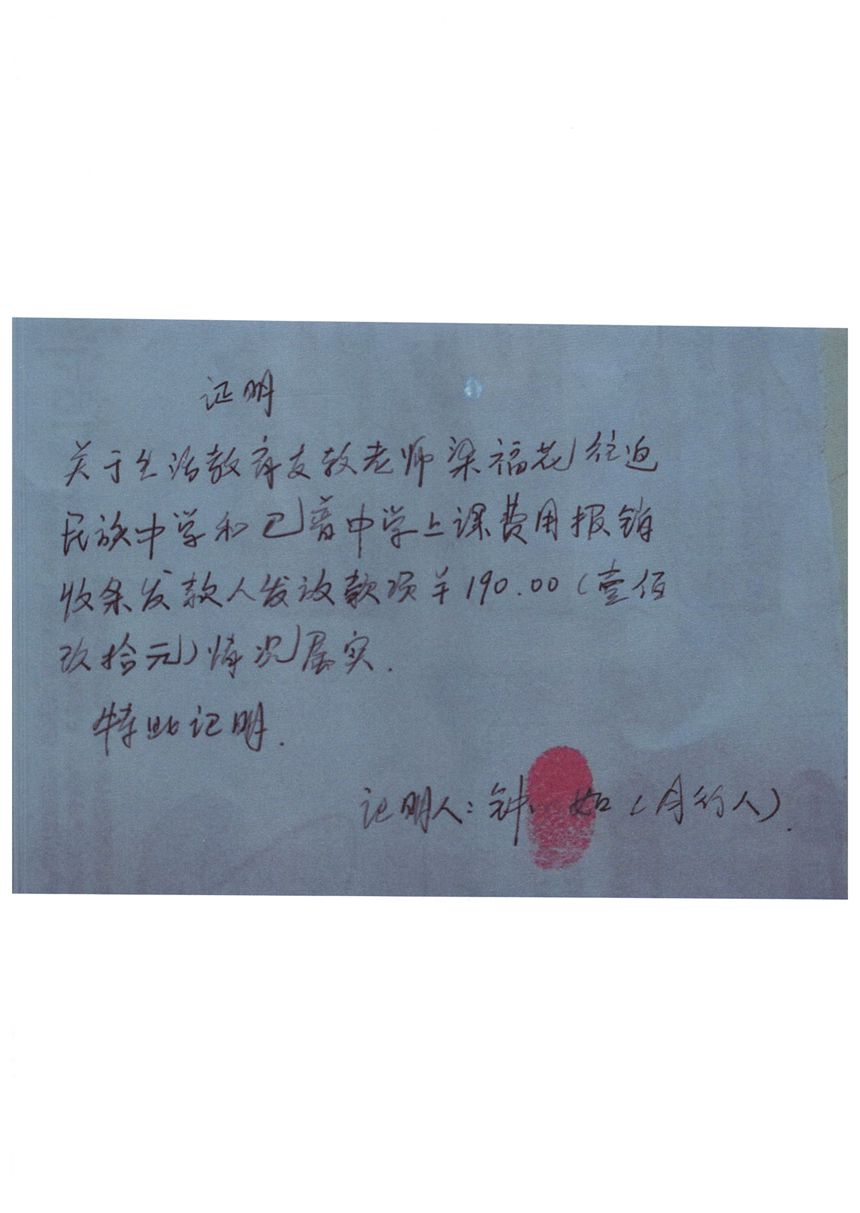 证明
关于生活教育支教老师梁福花往迫
民族中学和巴音中学上课费用报销
收条发款人发放款项羊190.00(壹佰
玖拾元)情况属实.
特此证明.
证明人:钟 如(月行人).